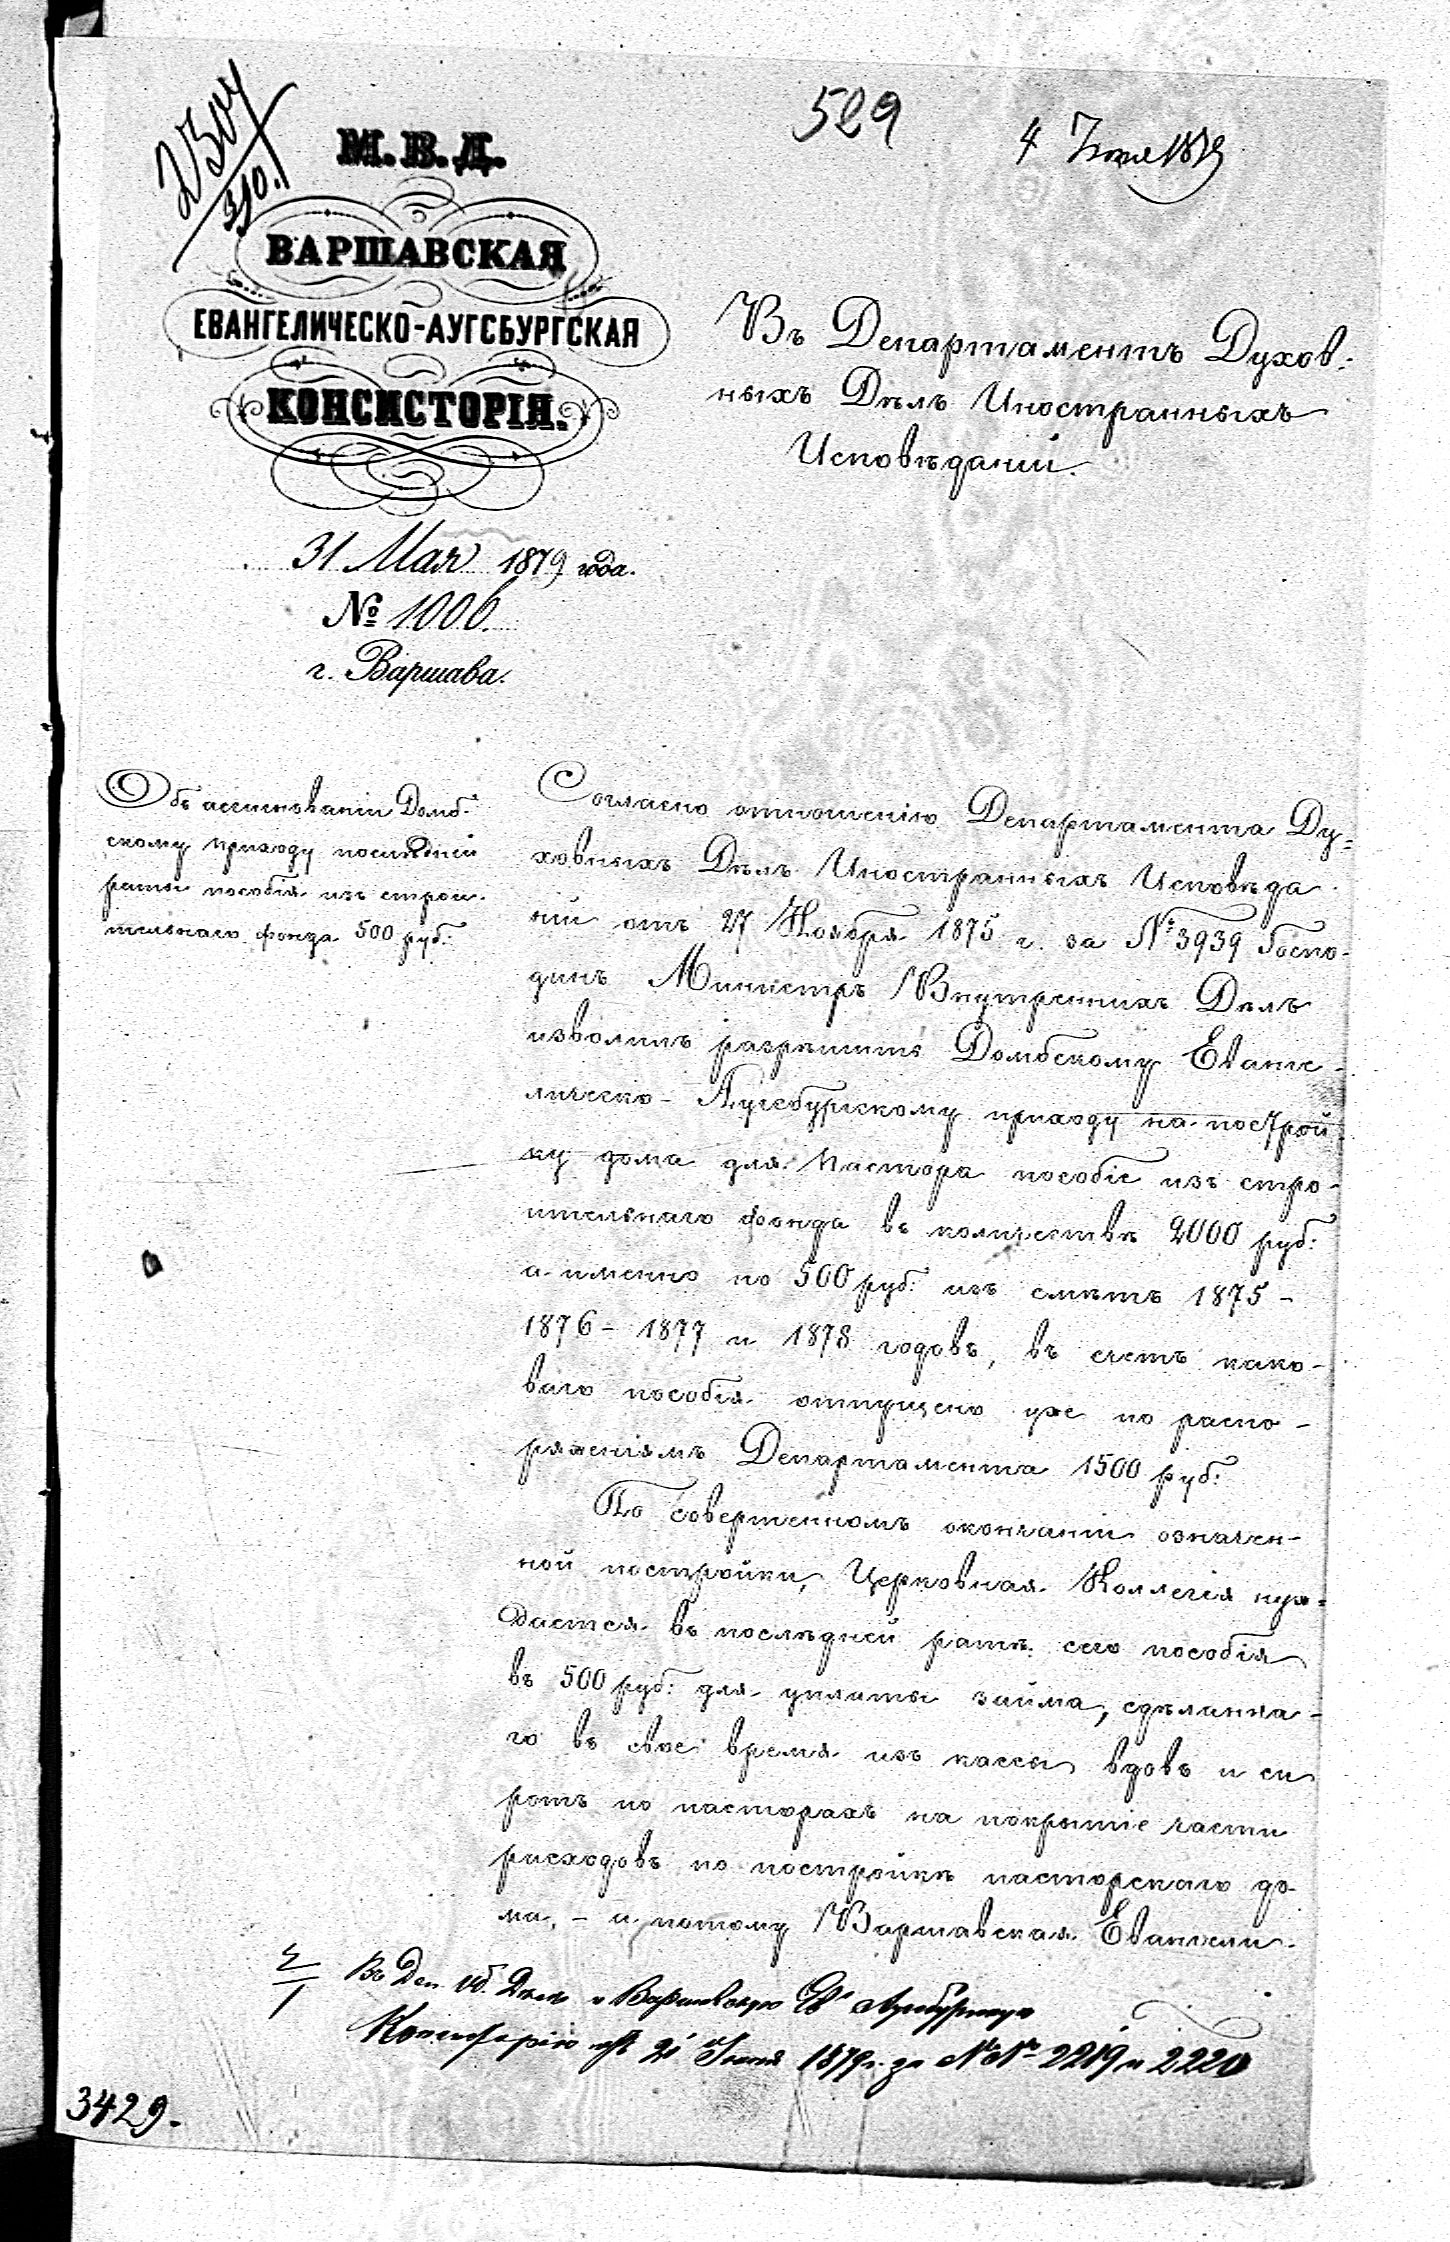 2304
390.
529
4 Іюня 1879
М.В.Д.
ВАРШАВСКАЯ
ЕВАНГЕЛИЧЕСКО-АУГСБУРГСКАЯ
КОНСИСТОРІЯ.
31 Мая 1879 года.
№ 1006.
г. Варшава.
Въ Департаментъ Духов-
ныхъ Дѣлъ Иностранныхъ
Исповѣданій.
Объ ассигнованіи Домб-
скому приходу послѣдней
раты пособія изъ строи-
тельнаго фонда 500 руб:
Согласно отношенію Департамента Ду-
ховныхъ Дѣлъ Иностранныхъ Исповѣда-
ній отъ 27 Ноября 1875 г. за № 3939 Госпо-
динъ Министръ Внутреннихъ Дѣлъ
изволилъ разрѣшить Домбскому Еванге-
лическо-Аугсбургскому приходу на построй
ку дома для Пастора пособіе изъ стро-
ительнаго фонда въ количествѣ 2000 руб:
а именно по 500 руб: изъ смѣтъ 1875-
1876- 1877 и 1878 годовъ, въ счетъ како-
ваго пособія отпущено уже по распо-
ряженіямъ Департамента 1500 руб:
По совершенномъ окончаніи означен-
ной постройки, Церковная Коллегія нуж-
дается въ послѣдней ратѣ сего пособія
въ 500 руб: для уплаты займа, сдѣланна-
го въ свое время изъ кассы вдовъ и си
ротъ по пасторахъ на покрытіе части
расходовъ по постройкѣ пасторскаго до-
ма, - и потому Варшавская Евангели-
Въ Деп. Об. Дѣлъ и Варшавскую Ев. Аугсбургскую
Консисторію отъ 21 Іюня 1879 г. за №№ 2219 и 2220
3429.